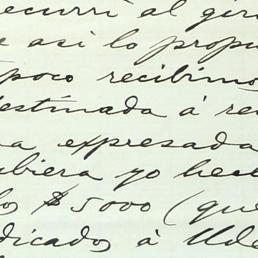 ecurri al gir
e asi lo propu
poco recibimo
destinada á re
na expresada
ubiera yo hec
los $5000 (que
dicados á Ude